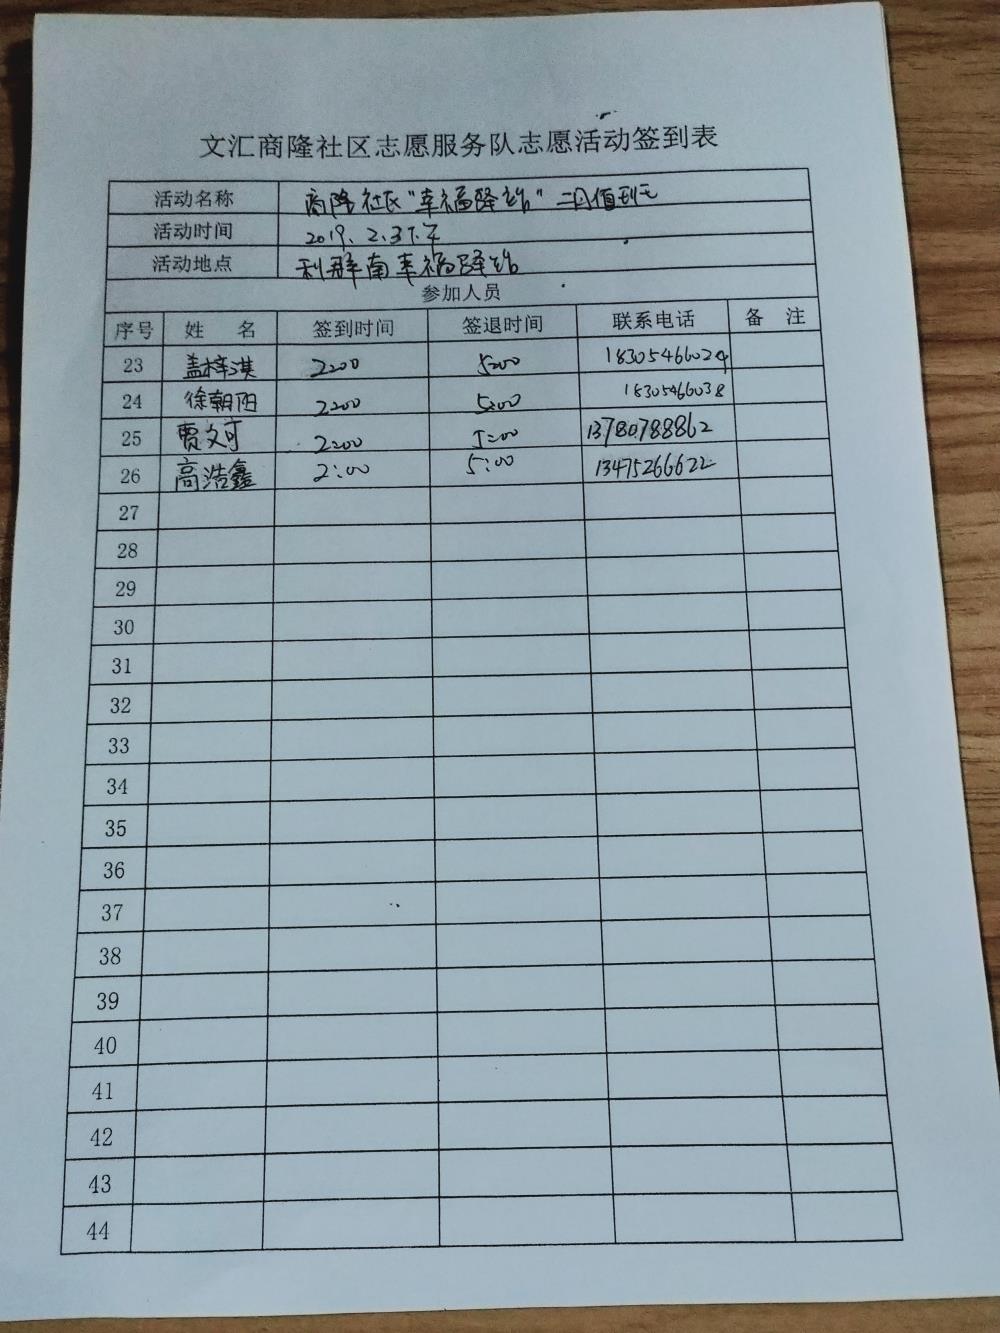 文汇商隆社区志愿服务队志愿活动签到表
活动名称 商隆社区"幸福驿站"二月值班
活动时间 2019.2.3下午
活动地点 利群南幸福驿站
参加人员
序号 姓 名 签到时间 签退时间 联系电话 备 注
23 盖梓淇 2:00 5:00 18305466029
24 徐朝阳 2:00 5:00 18305466038
25 贾文可 2:00 5:00 13780788862
26 高浩鑫 2:00 5:00 13475266622
27
28
29
30
31
32
33
34
35
36
37
38
39
40
41
42
43
44